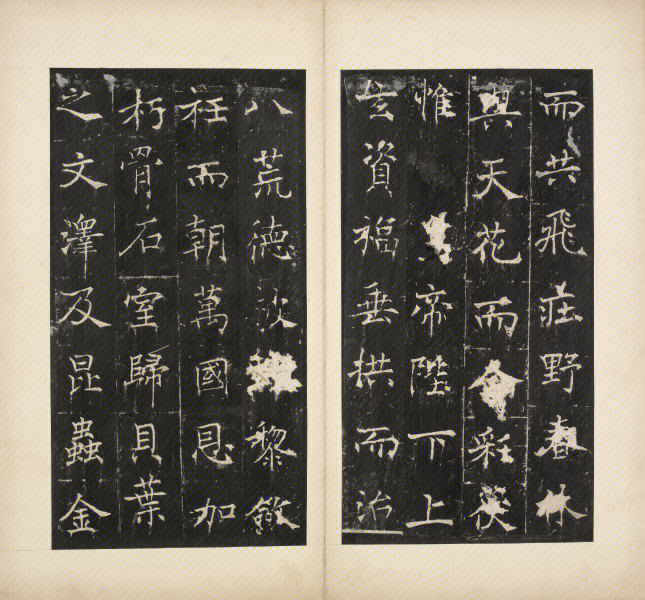 而共飛莊野春林
與天花而合彩伏
惟帝陛下上
玄資福垂拱而治
八荒德被黎斂
衽而朝萬國恩加
朽骨石室歸貝葉
之文澤及昆蟲金